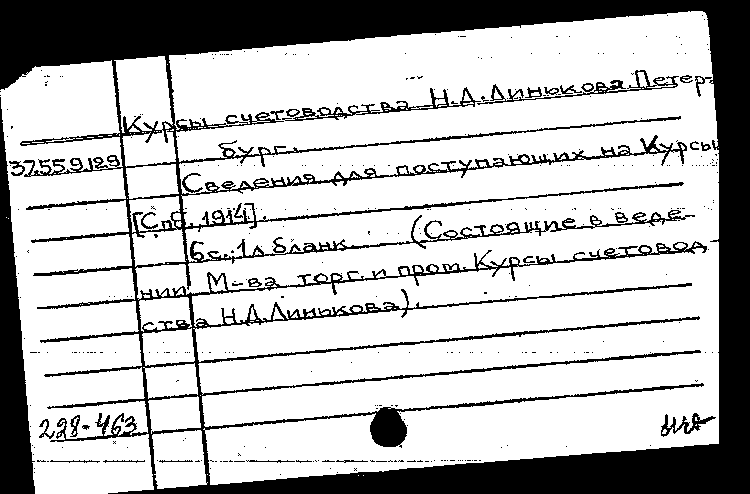 Курсы счетоводства Н.Д.Линькова.Петер-
бург.
37.55.9.129
Сведения для поступающих на Курсы
[Спб.,1914].
6с.;1л.бланк. (Состоящие в веде-
нии М-ва торг. и пром. Курсы счетовод-
ства Н.Д.Линькова).
228-463